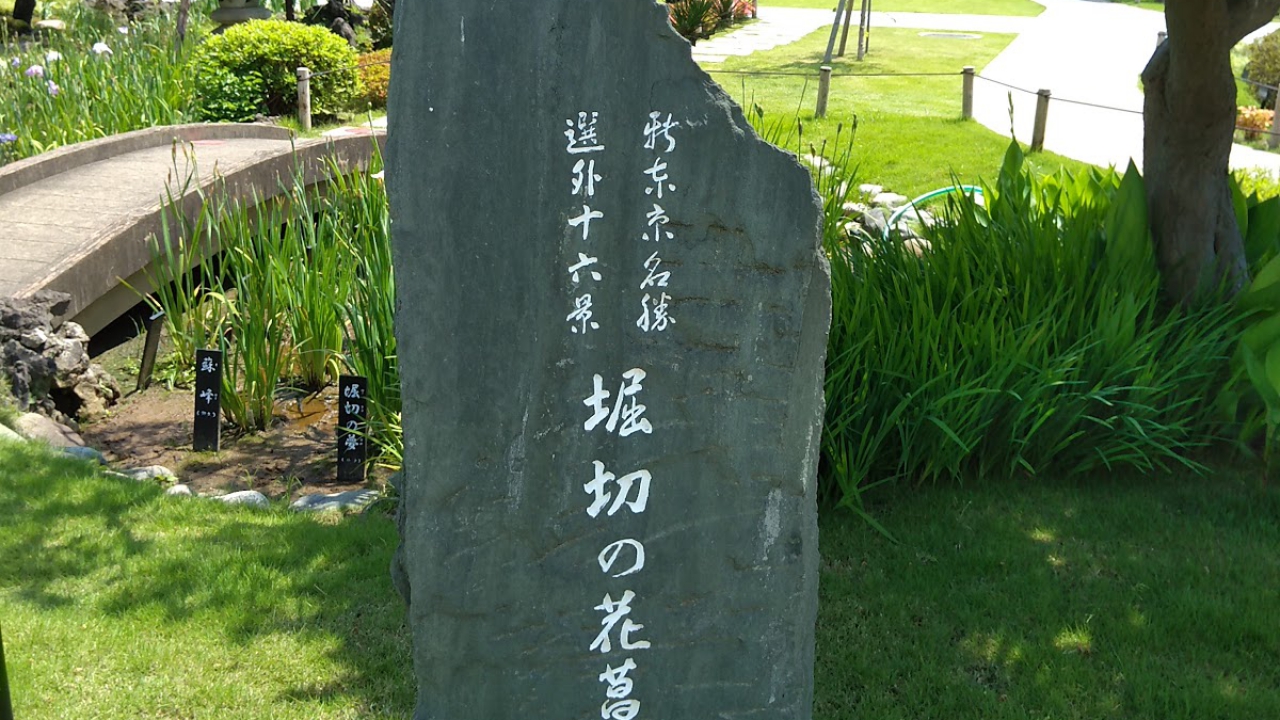 新東京名勝
選外十六景
堀切の花菖
蘇峰
堀切の夢